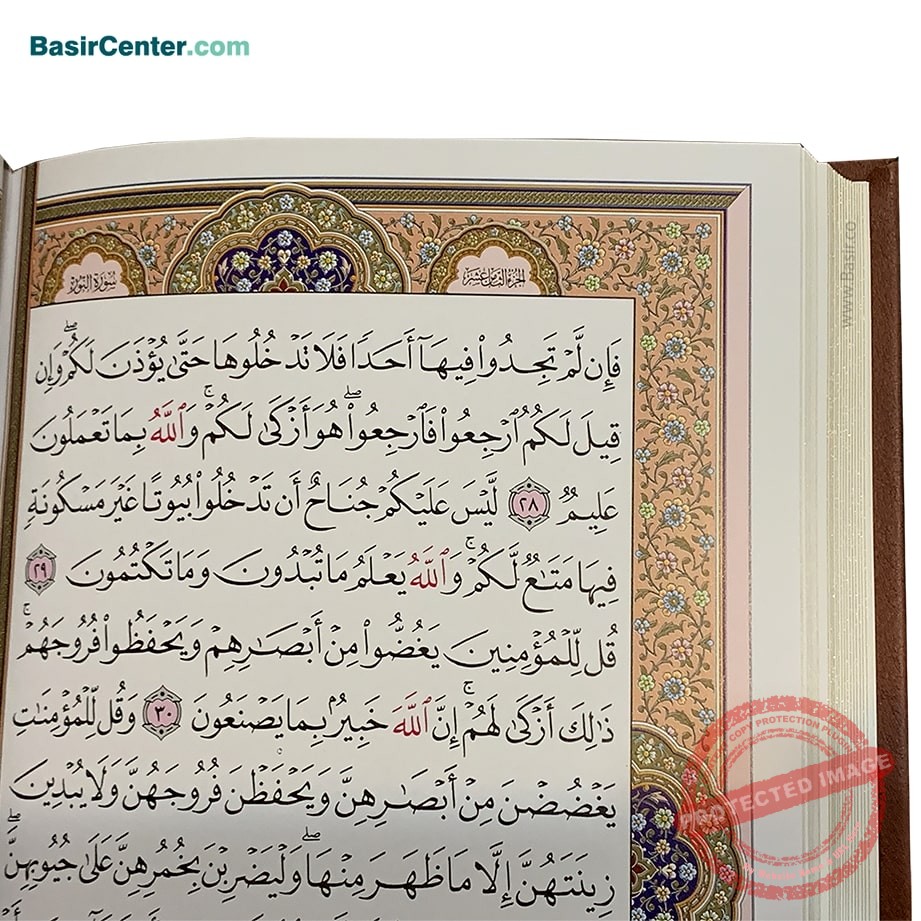 BasirCenter.com
الجزء الثامن عشر
سورة النور
فَإِن لَّمْ تَجِدُوا۟ فِيهَآ أَحَدًا فَلَا تَدْخُلُوهَا حَتَّىٰ يُؤْذَنَ لَكُمْ ۖ وَإِن
قِيلَ لَكُمُ ٱرْجِعُوا۟ فَٱرْجِعُوا۟ ۖ هُوَ أَزْكَىٰ لَكُمْ ۚ وَٱللَّهُ بِمَا تَعْمَلُونَ
عَلِيمٌ ٢٨ لَّيْسَ عَلَيْكُمْ جُنَاحٌ أَن تَدْخُلُوا۟ بُيُوتًا غَيْرَ مَسْكُونَةٍ
فِيهَا مَتَـٰعٌ لَّكُمْ ۚ وَٱللَّهُ يَعْلَمُ مَا تُبْدُونَ وَمَا تَكْتُمُونَ ٢٩
قُل لِّلْمُؤْمِنِينَ يَغُضُّوا۟ مِنْ أَبْصَـٰرِهِمْ وَيَحْفَظُوا۟ فُرُوجَهُمْ ۚ
ذَٰلِكَ أَزْكَىٰ لَهُمْ ۗ إِنَّ ٱللَّهَ خَبِيرٌۢ بِمَا يَصْنَعُونَ ٣٠ وَقُل لِّلْمُؤْمِنَـٰتِ
يَغْضُضْنَ مِنْ أَبْصَـٰرِهِنَّ وَيَحْفَظْنَ فُرُوجَهُنَّ وَلَا يُبْدِينَ
زِينَتَهُنَّ إِلَّا مَا ظَهَرَ مِنْهَا ۖ وَلْيَضْرِبْنَ بِخُمُرِهِنَّ عَلَىٰ جُيُوبِهِنَّ ۖ
www.Basir.co
COPY PROTECTION PLUGIN
PROTECTED IMAGE